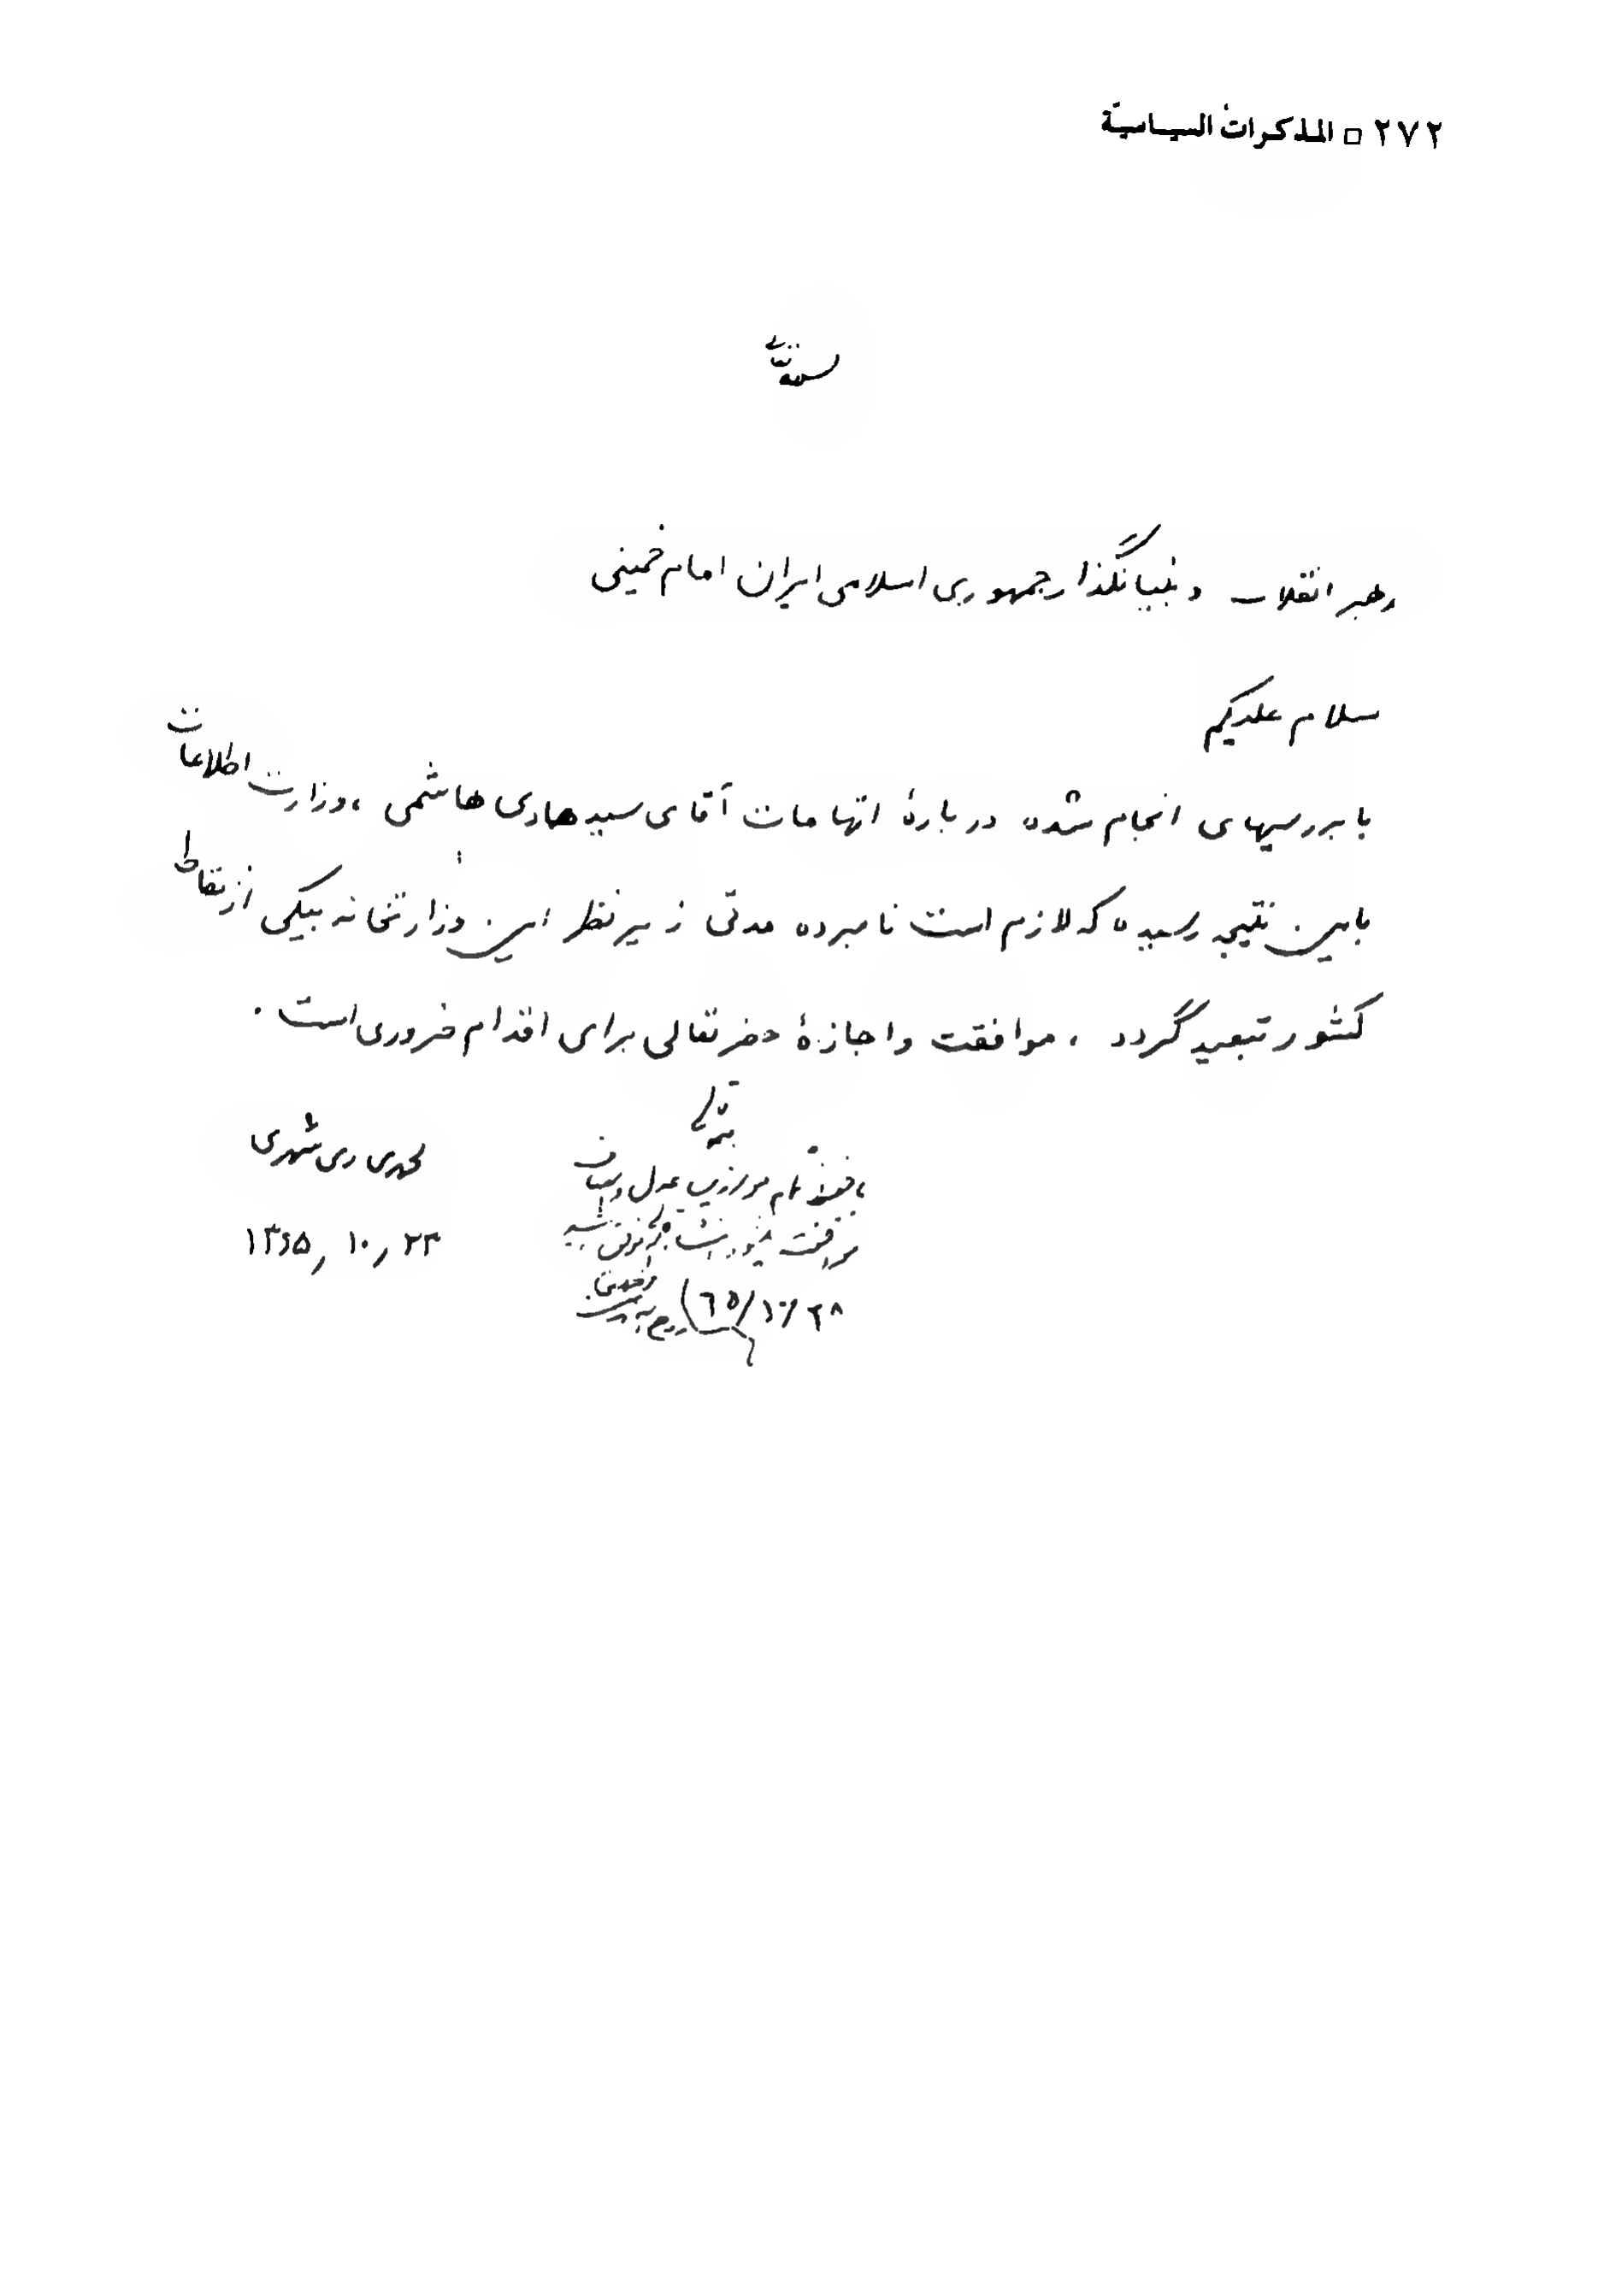 ٢٧٢ □ المذكرات السياسية
بسمه تعالی
رهبر انقلاب و بنیانگذار جمهوری اسلامی ایران امام خمینی
سلام علیکم
با بررسیهای انجام شده دربارهٔ اتهامات آقای سید هادی هاشمی ، وزارت اطلاعات
باین نتیجه رسیده که لازم است نامبرده مدتی زیر نظر این وزارتخانه بیکی از نقاط
کشور تبعید گردد ، موافقت و اجازهٔ حضرتعالی برای اقدام ضروری است .
محمدی ری شهری
۱۳۶۵/۱۰/۲۳
بسمه تعالی
با تمام موازین عدل و انصاف
موافقت
٢٨/١٠/٦٥